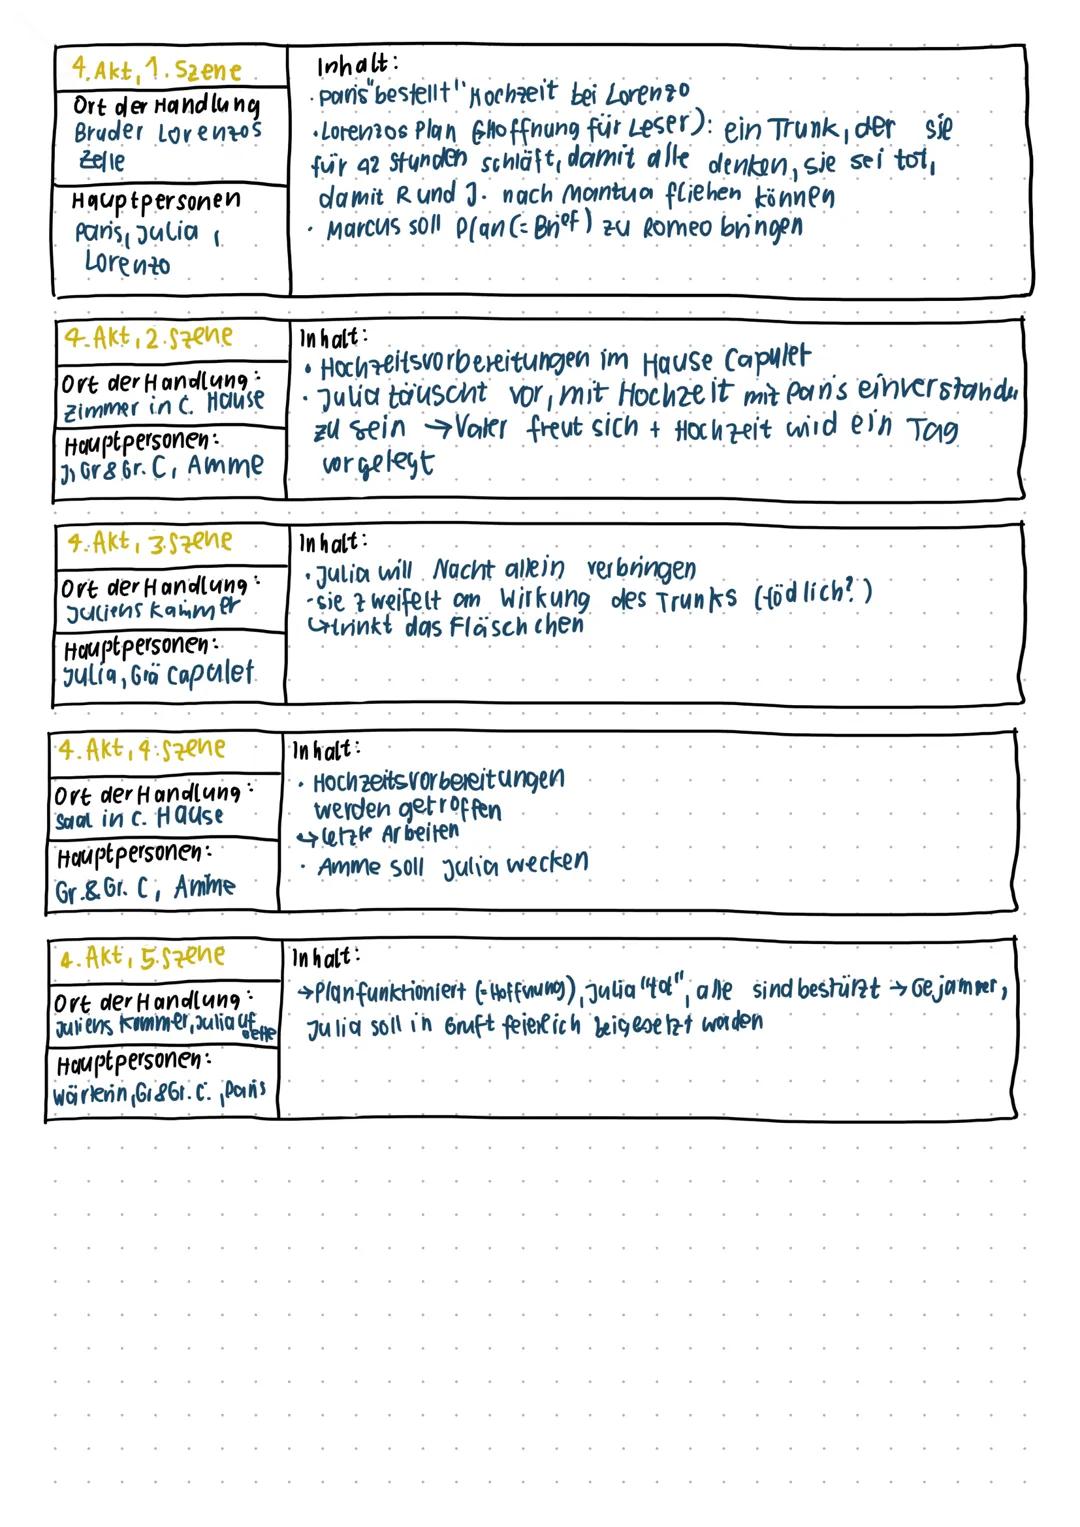 4. Akt, 1. Szene
Ort der Handlung
Bruder Lorenzos
Zelle
Hauptpersonen
Paris, Julia,
Lorenzo
Inhalt:
· Paris "bestellt" Hochzeit bei Lorenzo
· Lorenzos Plan (Hoffnung für Leser): ein Trunk, der sie
für 42 Stunden schläft, damit alle denken, sie sei tot,
damit R und J. nach Mantua fliehen können
· Marcus soll Plan (= Brief) zu Romeo bringen
4. Akt, 2. Szene
Ort der Handlung:
Zimmer in C. Hause
Hauptpersonen:
J, Gr & Gr. C, Amme
Inhalt:
· Hochzeitsvorbereitungen im Hause Capulet
· Julia täuscht vor, mit Hochzeit mit Paris einverstanden
zu sein → Vater freut sich + Hochzeit wird ein Tag
vorgelegt
4. Akt, 3. Szene
Ort der Handlung:
Juliens Kammer
Hauptpersonen:
Julia, Grä Capulet
Inhalt:
· Julia will Nacht allein verbringen
- sie zweifelt am Wirkung des Trunks (tödlich?)
↳ trinkt das Fläschchen
4. Akt, 4. Szene
Ort der Handlung:
Saal in C. Hause
Hauptpersonen:
Gr. & Gr. C, Amme
Inhalt:
· Hochzeitsvorbereitungen
werden getroffen
↳ letzte Arbeiten
· Amme soll Julia wecken
4. Akt, 5. Szene
Ort der Handlung:
Juliens Kammer, Julia auf
Bette
Hauptpersonen:
Wärterin, Gr & Gr. C., Paris
Inhalt:
→ Plan funktioniert (= Hoffnung), Julia "tot", alle sind bestürzt → Gejammer,
Julia soll in Gruft feierlich beigesetzt werden